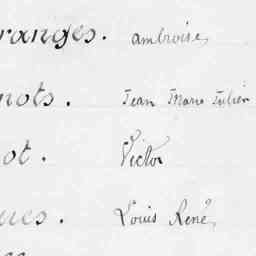 ranges. ambroise,
nots. Jean Marie Julien
ot. Victor
ues. Louis René,